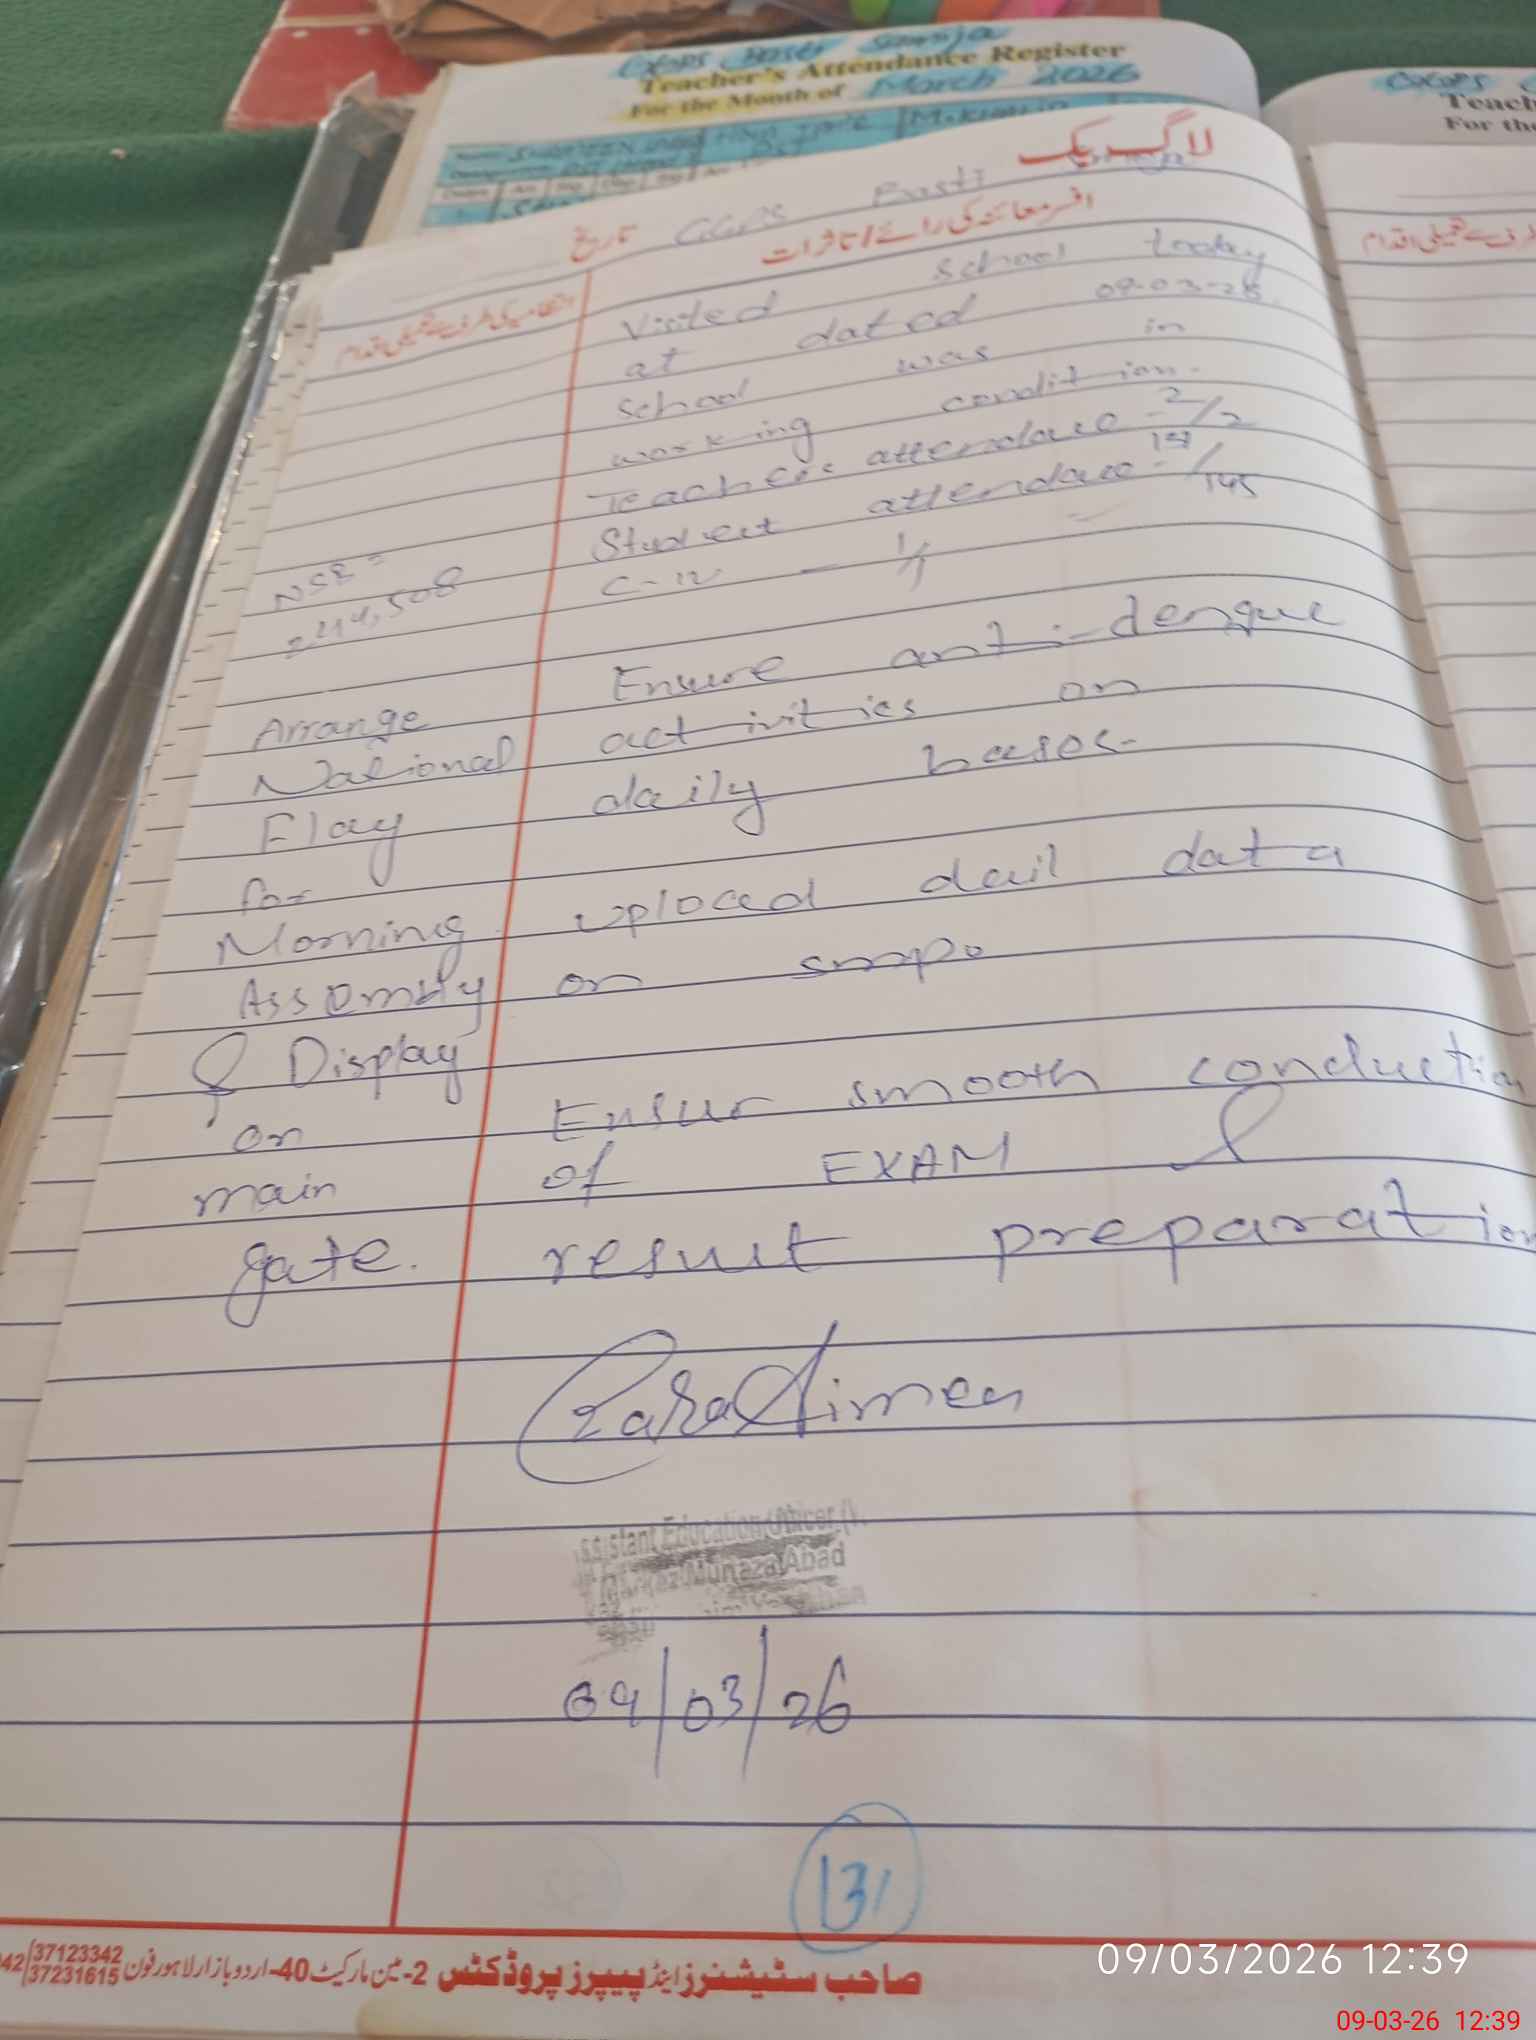 Teacher's Attendance Register
For the Month of March 2026
Teach
For the
لاگ بک
تاریخ GGPS Basti
افسر معائنہ کی رائے / تاثرات
انتظامیہ کی طرف سے تعمیلی اقدام
Visited school today
at dated 09-03-26
school was in
working condition.
Teachers attendace - 2/2
Student attendace -
/145
C-IV — 1/1
NSB =
244,508
Ensure anti-dengue
activities on
daily bases-
uploed dail data
on smpo
Ensur smooth conduction
of EXAM &
result preparation
Arrange
National
Flag
for
Morning
Assembly
& Display
on
main
gate.
Zara Aimen
Assistant Education Officer ()
Markaz Munaza Abad
09/03/26
131
صاحب سٹیشنرز اینڈ پیپرز پروڈکٹس 2-مین مارکیٹ 40-اردو بازار لاہور فون 37123342
37231615
09/03/2026 12:39
09-03-26 12:39